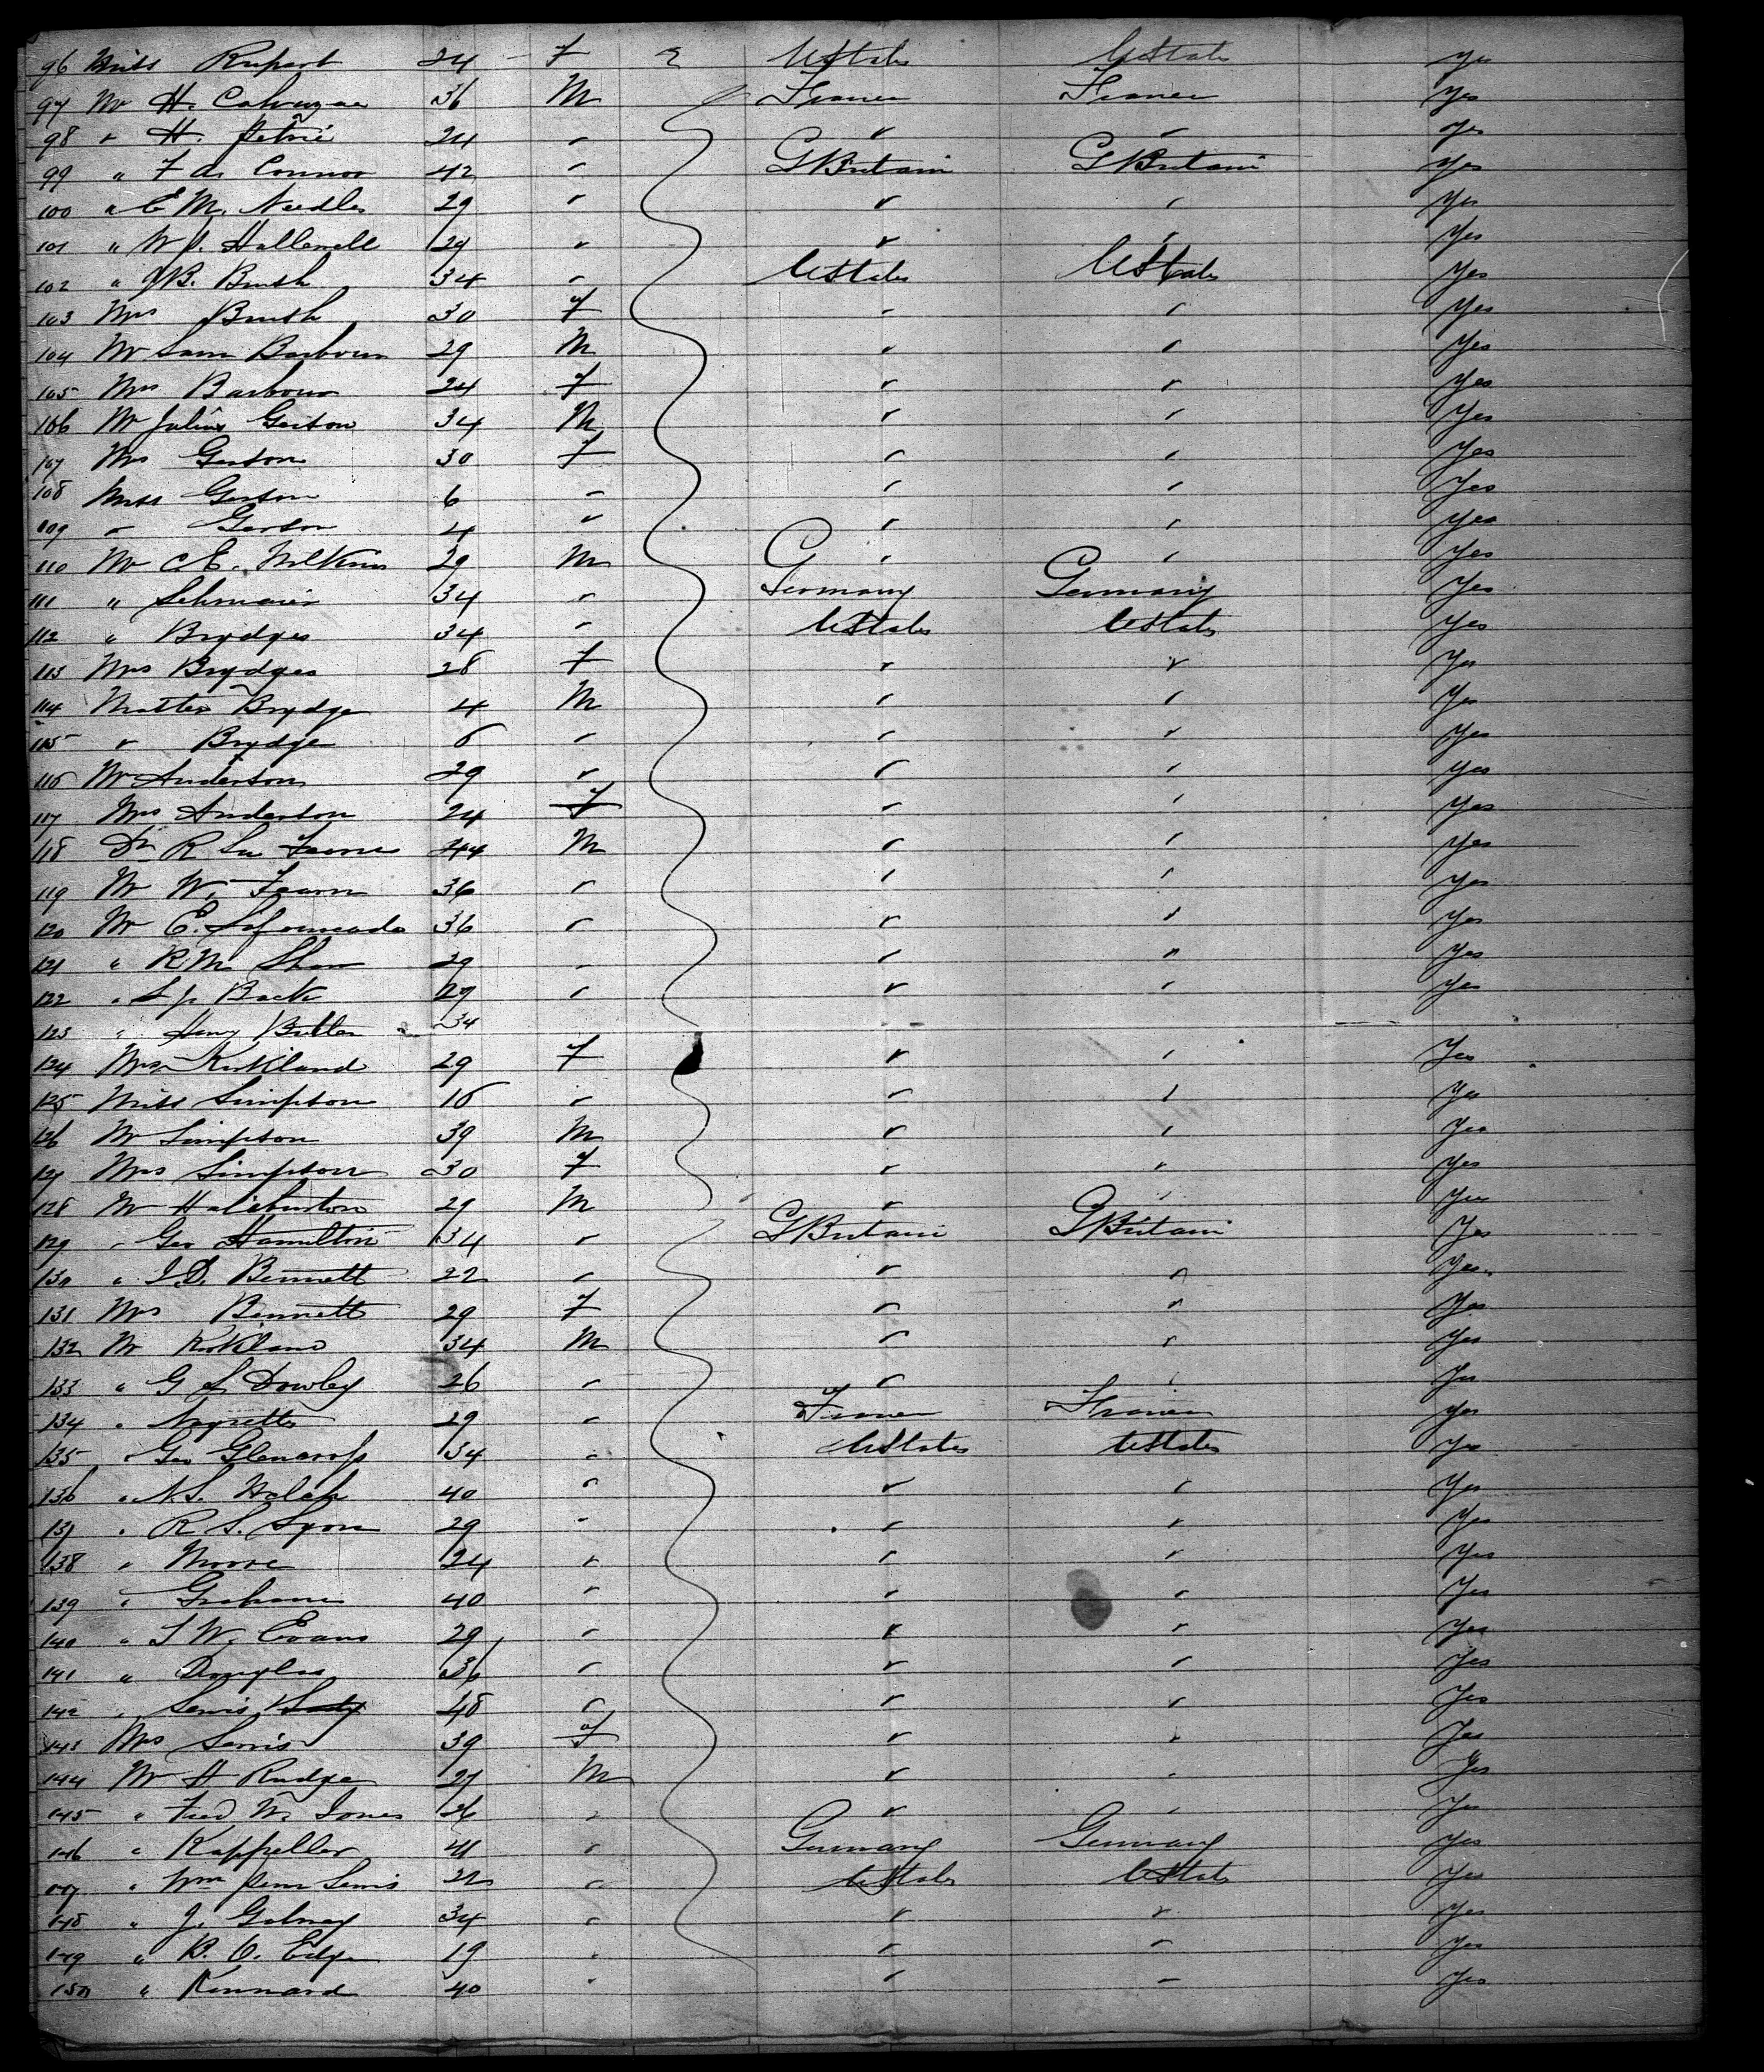 96 Miss Rupert 24 - F UStates UStates Yes
97 Mr H. 36 M France France Yes
98 " H. Petrie 24 " " " Yes
99 " F A. Connor 42 " GBritain GBritain Yes
100 " E M. Needles 29 " " " Yes
101 " W J. Hallewell 29 " " " Yes
102 " J B. Brush 34 " UStates UStates Yes
103 Mrs Brush 30 F " " Yes
104 Mr Sam Barbour 29 M " " Yes
105 Mrs Barbour 24 F " " Yes
106 Mr Julius Gerson 34 M " " Yes
107 Mrs Gerson 30 F " " Yes
108 Miss Gerson 6 " " " Yes
109 " Gerson 4 " " " Yes
110 Mr C. E. Wilkins 29 M " " Yes
111 " 34 " Germany Germany Yes
112 " Brydges 34 " UStates UStates Yes
113 Mrs Brydges 28 F " " Yes
114 Master Brydge 4 M " " Yes
115 " Brydge 6 " " " Yes
116 Mr Anderson 29 " " " Yes
117 Mrs Anderson 24 F " " Yes
118 Dr R 44 M " " Yes
119 Mr W. Fearn 36 " " " Yes
120 Mr E. 36 " " " Yes
121 " R.M. Shaw 29 " " " Yes
122 " Back 29 " " " Yes
123 " Henry Butler 34
124 Mrs Kirkland 29 F " " Yes
125 Miss Simpson 16 " " " Yes
126 Mr Simpson 39 M " " Yes
127 Mrs Simpson 30 F " " Yes
128 Mr Haliburton 29 M " " Yes
129 " Geo Hamilton 34 " GBritain GBritain Yes
130 " Bennett 22 " " " Yes
131 Mrs Bennett 29 F " " Yes
132 Mr Kirkland 34 M " " Yes
133 " G S Dowley 26 " " " Yes
134 " 29 " France France Yes
135 " Geo Glencross 34 " UStates UStates Yes
136 " N.S. 40 " " " Yes
137 " R S. Lyon 29 " " " Yes
138 " Moore 24 " " " Yes
139 " Graham 40 " " " Yes
140 " W. Evans 29 " " " Yes
141 " Douglas 36 " " " Yes
142 " Lewis 48 " " " Yes
143 Mrs Lewis 39 F " " Yes
144 Mr H Rudge 27 M " " Yes
145 " Fred W. Jones 26 " " " Yes
146 " Kappeller 41 " Germany Germany Yes
147 " Wm Penn Lewis 22 " UStates UStates Yes
148 " J. 34 " " " Yes
149 " B. O. Edge 19 " " " Yes
150 " Kennard 40 " " " Yes